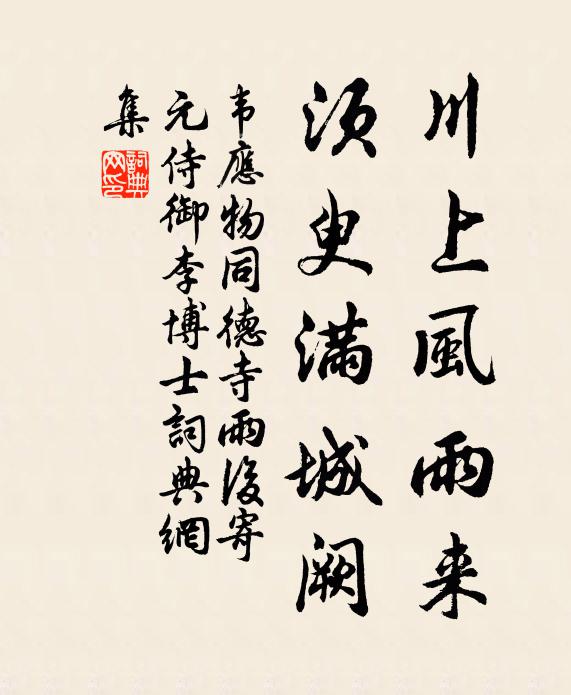 川上風雨来
須臾满城阙
韦應物同德寺雨後寄
元侍御李博士詞典網
集
詞典网印